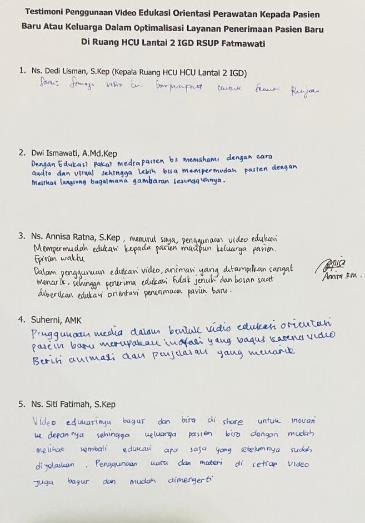 Testimoni Penggunaan Video Edukasi Orientasi Perawatan Kepada Pasien
Baru Atau Keluarga Dalam Optimalisasi Layanan Penerimaan Pasien Baru
Di Ruang HCU Lantai 2 IGD RSUP Fatmawati
1. Ns. Dedi Lisman, S.Kep (Kepala Ruang HCU HCU Lantai 2 IGD)
Semoga video ini bermanfaat untuk
2. Dwi Ismawati, A.Md.Kep
Dengan Edukasi pakai media pasien bs memahami dengan cara
audio dan visual sehingga lebih bisa mempermudah pasien dengan
melihat langsung bagaimana gambaran sesungguhnya.
3. Ns. Annisa Ratna, S.Kep, menurut saya, penggunaan video edukasi
Mempermudah edukasi kepada pasien maupun keluarga pasien.
Efisien waktu.
Dalam penggunaan edukasi video, animasi yang ditampilkan sangat
menarik, sehingga penerima edukasi tidak jenuh dan bosan saat
diberikan edukasi orientasi penerimaan pasien baru.
Annisa R.M.
4. Suherni, AMK
Penggunaan media dalam bentuk vidio edukasi orientasi
pasein baru merupakan inovasi yang bagus karena video
Berisi animasi dan penjelasan yang menarik
5. Ns. Siti Fatimah, S.Kep
Video edukasinya bagus dan bisa di share untuk inovasi
ke depannya sehingga keluarga pasien bisa dengan mudah
melihat kembali edukasi apa saja yang sebelumnya sudah
dijelaskan. Penggunaan kata dan materi di setiap video
juga bagus dan mudah dimengerti